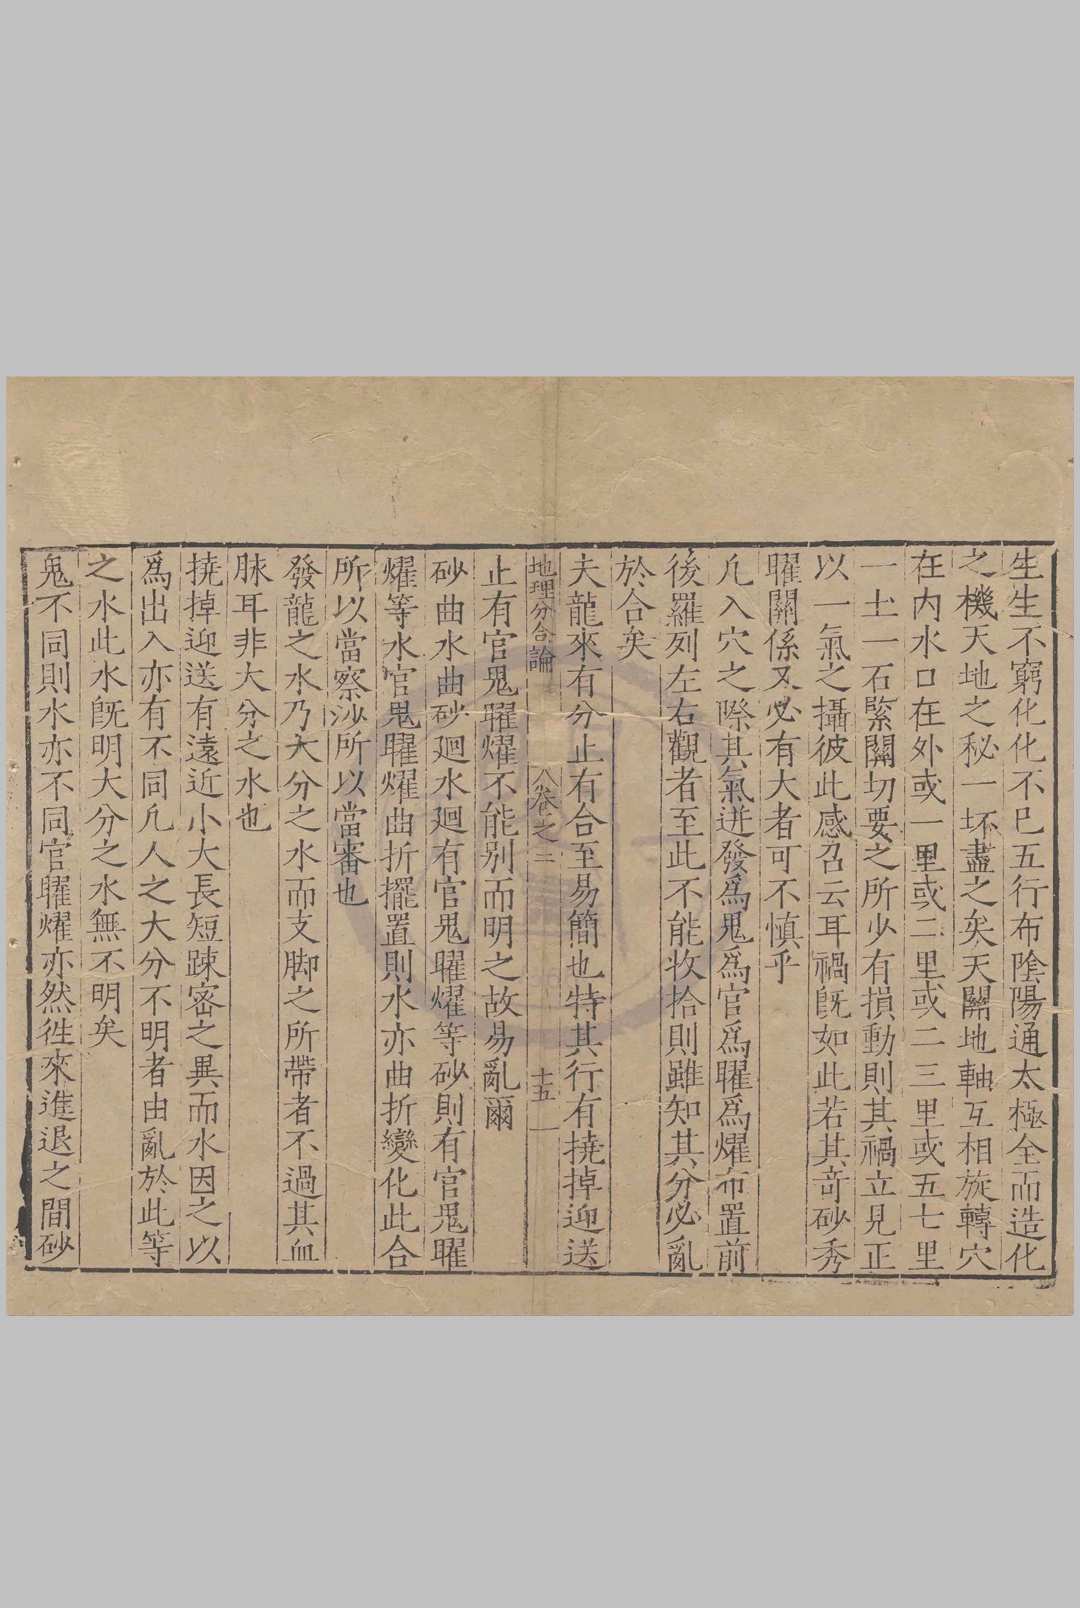 生生不窮化化不已五行布陰陽通太極全而造化
之機天地之秘一坏盡之矣天關地軸互相旋轉穴
在内水口在外或一里或二里或二三里或五七里
一土一石緊關切要之所少有損動則其禍立見正
以一氣之攝彼此感召云耳禍旣如此若其竒砂秀
曜關係又必有大者可不慎乎
凢入穴之際其氣迸發爲鬼爲官爲曜爲燿布置前
後羅列左右觀者至此不能收拾則雖知其分必亂
於合矣
夫龍來有分止有合至易簡也特其行有撓掉迎送
地理分合論 卷之二 十五
止有官鬼曜燿不能别而明之故易亂爾
砂曲水曲砂廻水廻有官鬼曜燿等砂則有官鬼曜
燿等水官鬼曜燿曲折擺置則水亦曲折變化此合
所以當察沙所以當審也
發龍之水乃大分之水而支脚之所帶者不過其血
脉耳非大分之水也
撓掉迎送有遠近小大長短踈密之異而水因之以
爲出入亦有不同凢人之大分不明者由亂於此等
之水此水旣明大分之水無不明矣
鬼不同則水亦不同官曜燿亦然徃來進退之間砂